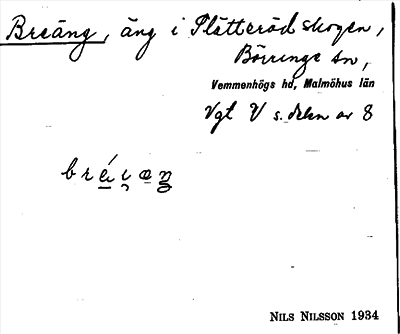 Breäng, äng i Plätteröd skogen,
Börringe sn,
Vemmenhögs hd, Malmöhus län
Vgt V s. delen av 8
NILS NILSSON 1934